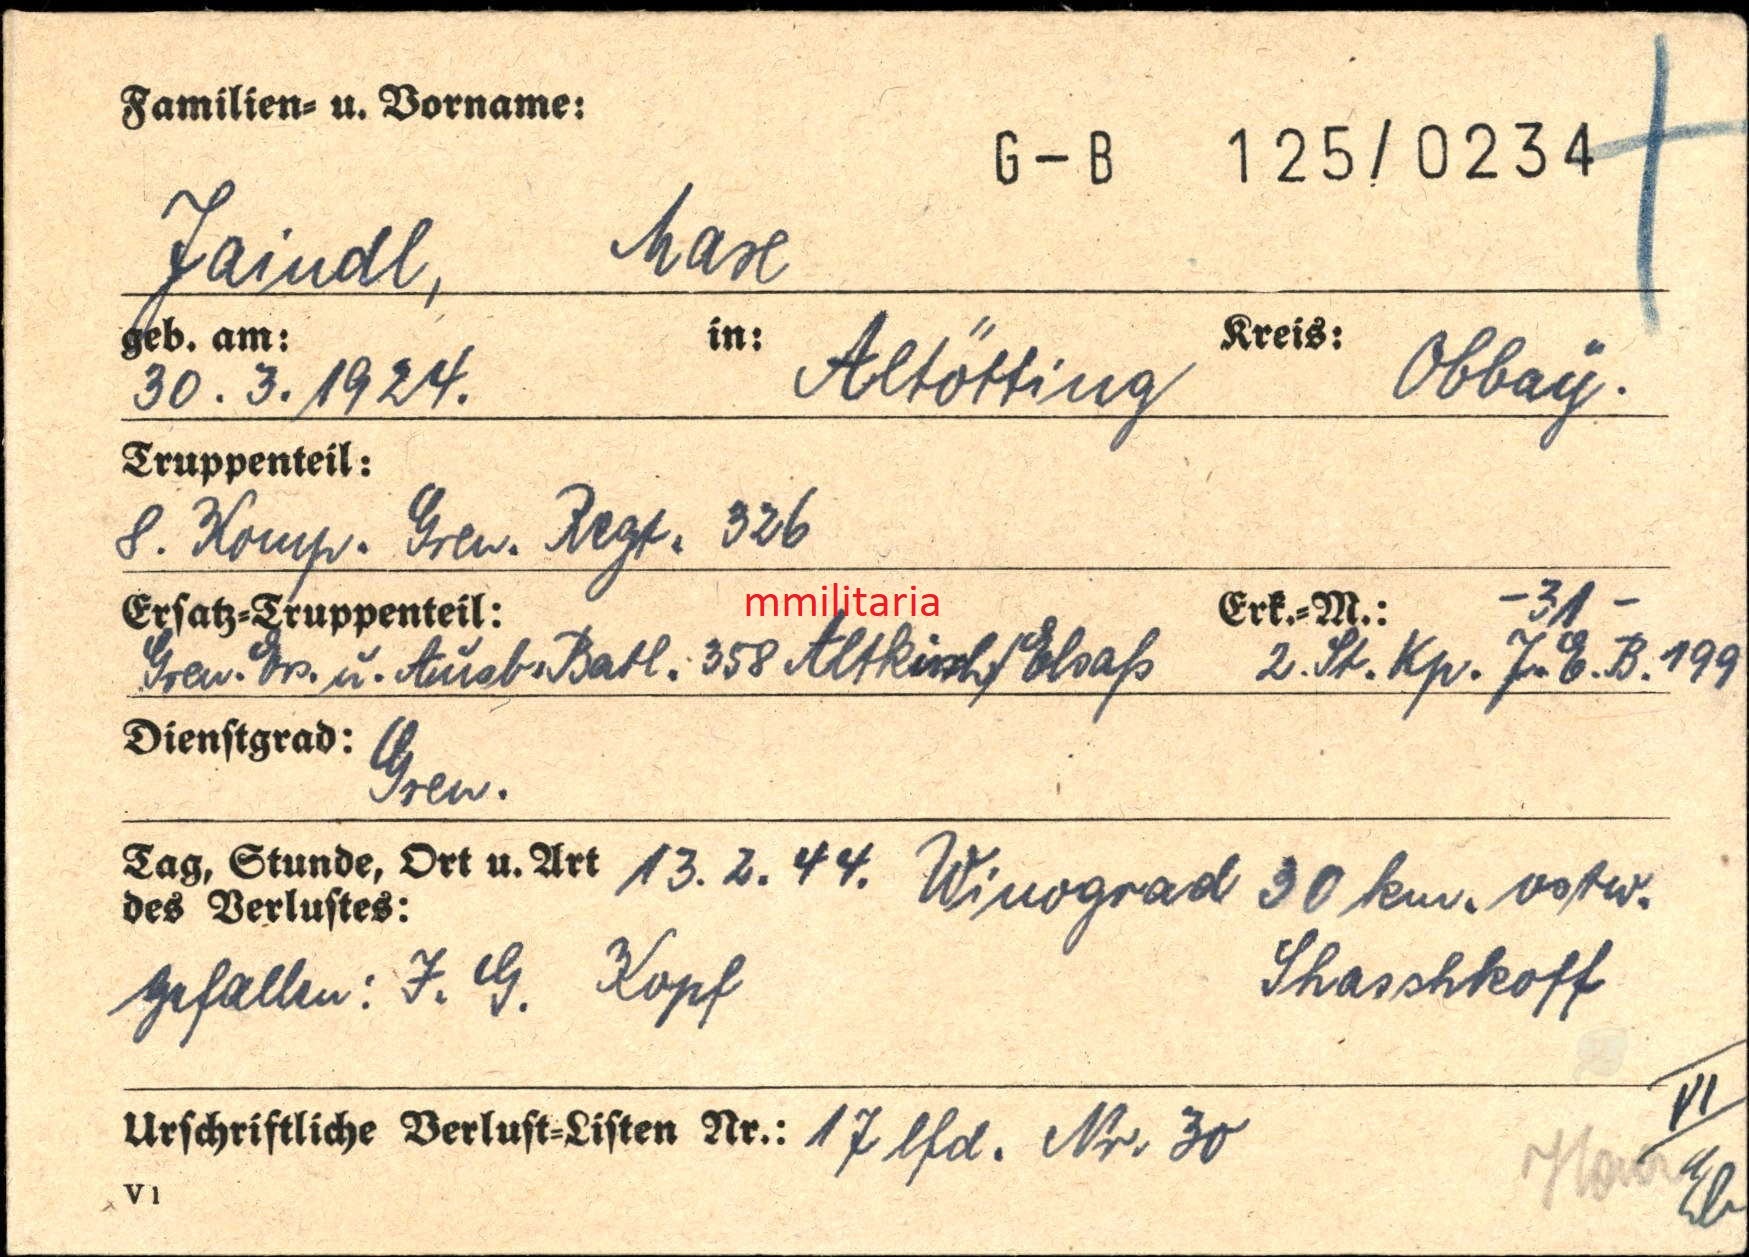 Familien- u. Vorname:
G-B 125/0234
Jaindl, Max
geb. am: in: Kreis:
30.3.1924. Altötting Obbaÿ.
Truppenteil:
8. Komp. Gren. Regt. 326
mmilitaria
Ersatz-Truppenteil: Erk.-M.: -31-
Gren. Ers. u. Ausb. Batl. 358 Altkirch/Elsaß 2. St. Kp. J.E.B. 199
Dienstgrad: Gren.
Tag, Stunde, Ort u. Art 13.2.44. Winograd 30 km. ostw.
des Verlustes:
gefallen: J. G. Kopf Shasshkoff
Urschriftliche Verlust-Listen Nr.: 17 lfd. Nr. 30
VI
V 1